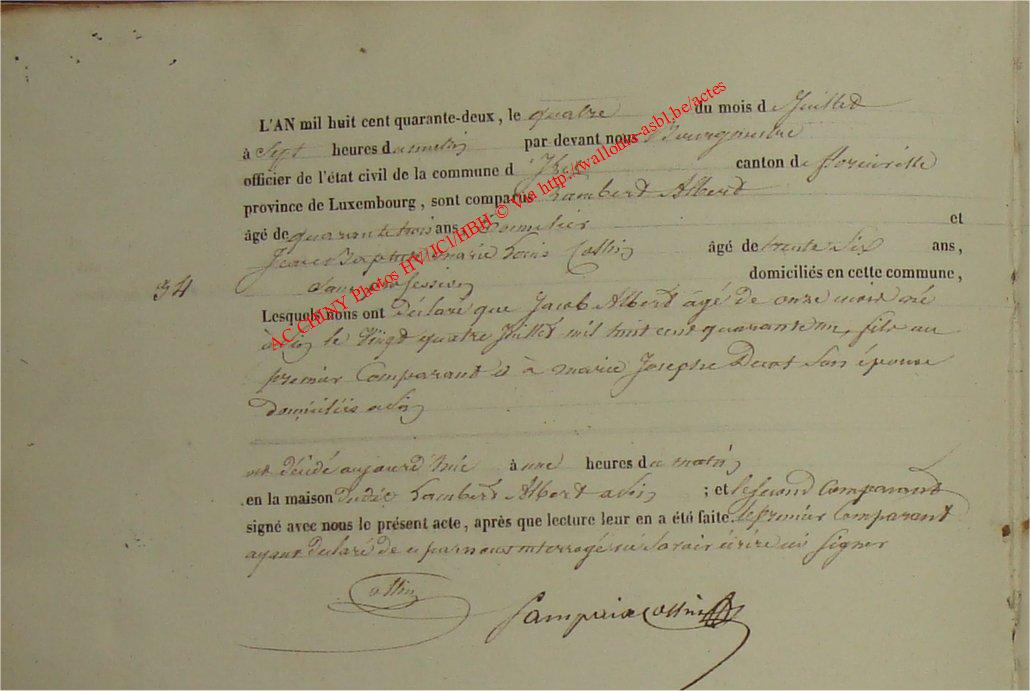 L'AN mil huit cent quarante-deux, le quatre du mois de Juillet
à Sept heures du matin par devant nous Bourgmestre
officier de l'état civil de la commune d' canton de florenville
province de Luxembourg, sont comparus Lambert Albert
âgé de quarante trois ans, et
Jean Baptiste marie Louis Collin âgé de trente Six ans,
Sans profession domiciliés en cette commune,
34
Lesquels nous ont Déclaré que Jacob Albert âgé de onze mois né
le Vingt quatre Juillet mil huit cent quarante un, fils au
premier Comparant et à marie Josephe Son épouse
domiciliés
est décédé aujourd'hui à une heures du matin
en la maison dudit Lambert Albert ; et le Second Comparant
signé avec nous le présent acte, après que lecture leur en a été faite. le premier Comparant
ayant Declaré de ce par nous interrogé ne Savoir écrire ni Signer
AC CHINY Photos HV/JCl/HBH © Via http://wallonia-asbl.be/actes